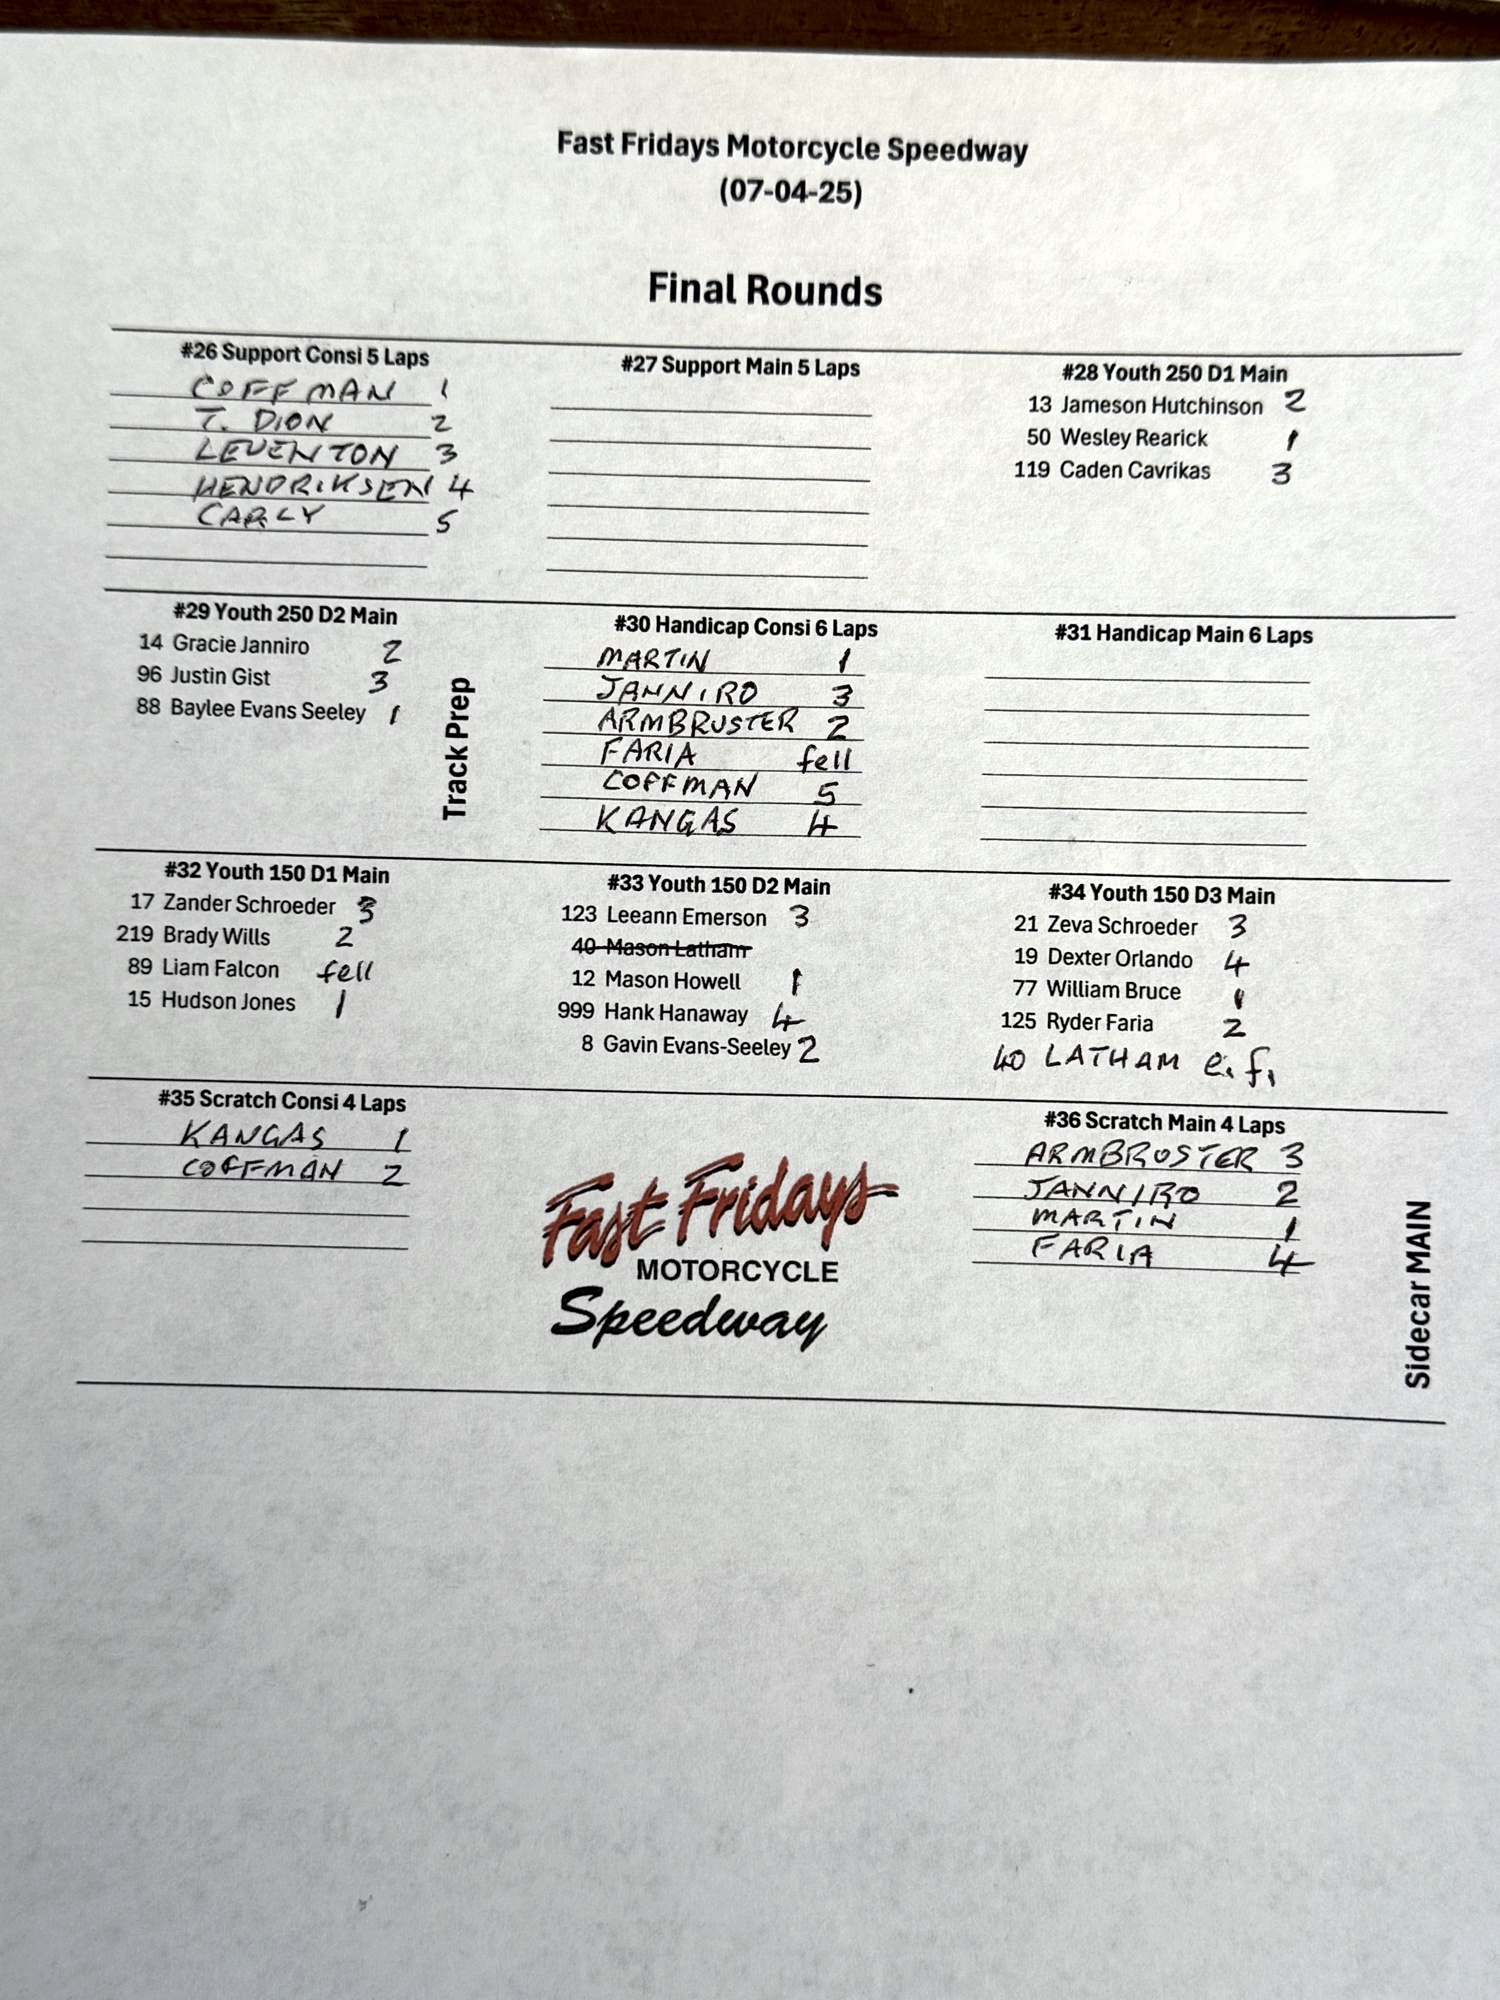 Fast Fridays Motorcycle Speedway
(07-04-25)
Final Rounds
#26 Support Consi 5 Laps
COFFMAN 1
T. DION 2
LEVENTON 3
HENDRIKSEN 4
CARLY 5
#27 Support Main 5 Laps
#28 Youth 250 D1 Main
13 Jameson Hutchinson 2
50 Wesley Rearick 1
119 Caden Cavrikas 3
#29 Youth 250 D2 Main
14 Gracie Janniro 2
96 Justin Gist 3
88 Baylee Evans Seeley 1
Track Prep
#30 Handicap Consi 6 Laps
MARTIN 1
JANNIRO 3
ARMBRUSTER 2
FARIA fell
COFFMAN 5
KANGAS 4
#31 Handicap Main 6 Laps
#32 Youth 150 D1 Main
17 Zander Schroeder 3
219 Brady Wills 2
89 Liam Falcon fell
15 Hudson Jones 1
#33 Youth 150 D2 Main
123 Leeann Emerson 3
40 Mason Latham
12 Mason Howell 1
999 Hank Hanaway 4
8 Gavin Evans-Seeley 2
#34 Youth 150 D3 Main
21 Zeva Schroeder 3
19 Dexter Orlando 4
77 William Bruce 1
125 Ryder Faria 2
40 LATHAM e.f.
#35 Scratch Consi 4 Laps
KANGAS 1
COFFMAN 2
Fast Fridays
MOTORCYCLE
Speedway
#36 Scratch Main 4 Laps
ARMBRUSTER 3
JANNIRO 2
MARTIN 1
FARIA 4
Sidecar MAIN